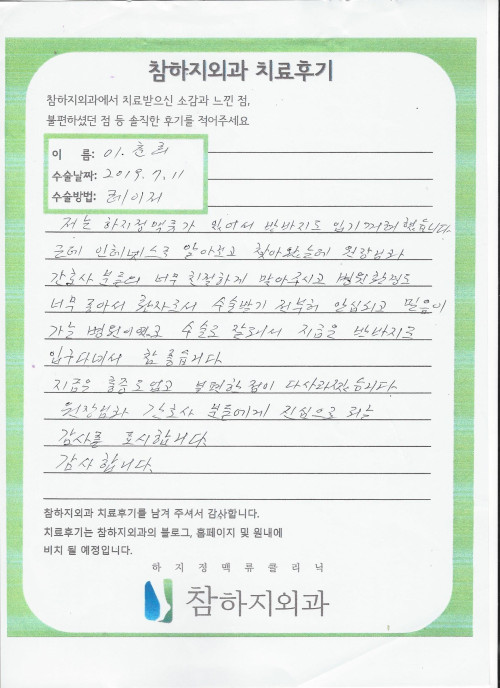 참하지외과 치료후기
참하지외과에서 치료받으신 소감과 느낀 점,
불편하셨던 점 등 솔직한 후기를 적어주세요
이 름: 이. 춘희
수술날짜: 2019. 7. 11
수술방법: 레이저
저는 하지정맥류가 있어서 반바지도 입기 꺼려 했습니다
근데 인터넷으로 알아보고 찾아왔는데 원장님과
간호사 분들의 너무 친절하게 맞아주시고 병원환경도
너무 좋아서 환자로서 수술받기 전부터 안심되고 믿음이
가는 병원이였고 수술도 잘돼서 지금은 반바지도
입구다녀서 참 좋습니다
지금은 흉존도없고 불편한점이 다사라졌습니다
원장님과 간호사 분들에게 진심으로
감사를 표시합니다.
감사합니다.
참하지외과 치료후기를 남겨 주셔서 감사합니다.
치료후기는 참하지외과의 블로그, 홈페이지 및 원내에
비치 될 예정입니다.
하지정맥류클리닉
참하지외과